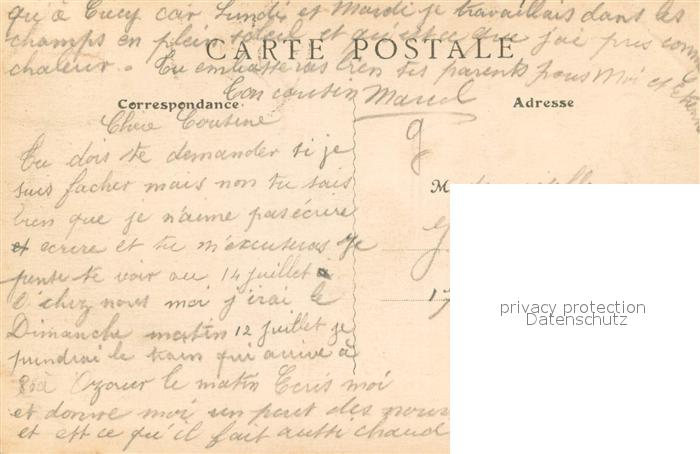 qu'à Crecy car Lundi et Mardi je travaillais dans les
champs en plein soleil et qu'est ce que j'ai pris comme
CARTE POSTALE
chaleur. Tu embrasseras bien tes parents pour Moi et
Ton cousin Marcel
Correspondance
Adresse
Chere Cousine
Tu dois te demander si je
suis facher mais non tu sais
bien que je n'aime pas écrire
et ecrire et tu m'excuseras Je
pense te voir au 14 juillet à
chez nous moi j'irai le
Dimanche matin 12 juillet je
prendrai le train qui arrive à
Ozouer le matin Ecris moi
et donne moi un peut des nouv
et est ce qu'il fait aussi chaud
M
privacy protection
Datenschutz